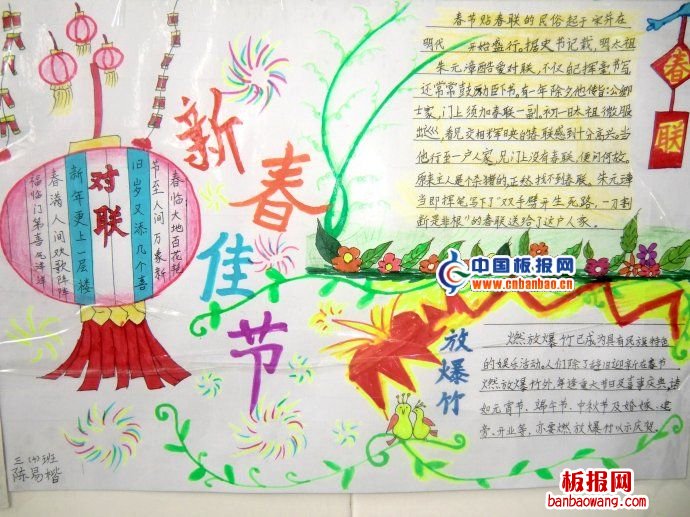 新春佳节
对联
春临大地百花艳
节至人间万象新
旧岁又添几个喜
新年更上一层楼
春满人间欢歌阵阵
福临门第喜气洋洋
春联
春节贴春联的民俗起于宋并在
明代 开始盛行，据史书记载，明太祖
朱元漳酷爱对联，不仅自己挥毫书写，
还常常鼓励臣下书，有一年除夕他传旨:公卿
士家，门上须加春联一副，初一日太祖微服
出巡，看见交相辉映的春联感到十分高兴。当
他行至一户人家，见门上没有春联，便问何故。
原来主人是个杀猪的，正愁找不到春联。朱元漳
当即挥笔写下了"双手劈开生死路，一刀割
断是非根"的春联送给了这户人家。
中国板报网
www.cnbanbao.cn
放爆竹
燃放爆竹已成为具有民族特色
的娱乐活动。人们除了辞旧迎新在春节
燃放爆竹外，每逢重大节日及喜事庆典，诸
如元宵节、端午节、中秋节及婚嫁、建
房、开业等，亦要燃放爆竹以示庆贺。
三(4)班
陈易楷
板报网
banbaowang.com